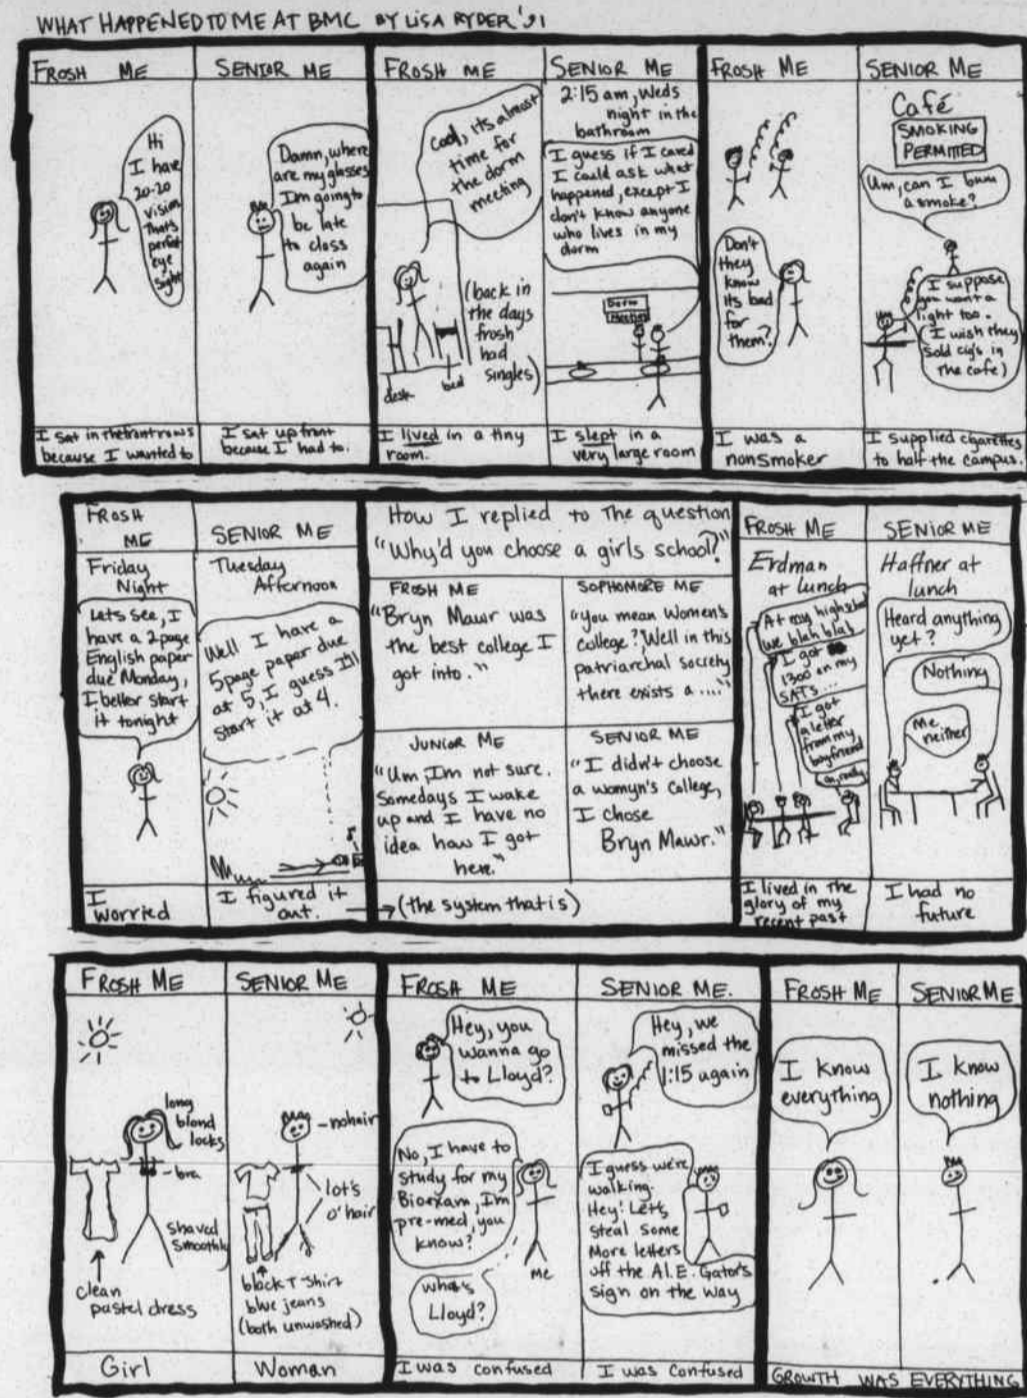 WHAT HAPPENED TO ME AT BMC BY LISA RYDER '91
FROSH ME
Hi
I have
20-20
vision
That's
perfect
eye
sight
I sat in the front rows
because I wanted to
SENIOR ME
Damn, where
are my glasses
I'm going to
be late
to class
again
I sat up front
because I had to.
FROSH ME
Cool, its almost
time for
the dorm
meeting
(back in
the days
frosh
had
singles)
desk
bed
I lived in a tiny
room.
SENIOR ME
2:15 am, Weds
night in the
bathroom
I guess if I cared
I could ask what
happened, except I
don't know anyone
who lives in my
dorm
Dorm
Meeting
I slept in a
very large room
FROSH ME
Don't
they
know
its bad
for
them?
I was a
nonsmoker
SENIOR ME
Café
SMOKING
PERMITTED
Um, can I bum
a smoke?
I suppose
you want a
light too.
(I wish they
sold cigs in
the cafe)
I supplied cigarettes
to half the campus.
FROSH
ME
Friday
Night
Lets see, I
have a 2page
English paper
due Monday,
I better start
it tonight
I
worried
SENIOR ME
Tuesday
Afternoon
Well I have a
5page paper due
at 5, I guess I'll
start it at 4.
I figured it
out. → (the system that is)
How I replied to the question
"Why'd you choose a girls school?"
FROSH ME
"Bryn Mawr was
the best college I
got into."
SOPHOMORE ME
"you mean Women's
college? Well in this
patriarchal society
there exists a ...."
JUNIOR ME
"Um, Im not sure.
Somedays I wake
up and I have no
idea how I got
here."
SENIOR ME
"I didn't choose
a womyn's College,
I chose
Bryn Mawr."
FROSH ME
Erdman
at lunch
At my highschool
we blah blah
I got
1300 on my
SATs...
I got
a letter
from my
boyfriend
oh, really
I lived in the
glory of my
recent past
SENIOR ME
Haffner at
lunch
Heard anything
yet?
Nothing
Me
neither
I had no
future
FROSH ME
long
blond
locks
bra
shaved
smoothly
clean
pastel dress
Girl
SENIOR ME
-nohair
lot's
o' hair
black T-shirt
blue jeans
(both unwashed)
Woman
FROSH ME
Hey, you
wanna go
to Lloyd?
No, I have to
study for my
Bio exam, I'm
pre-med, you
know?
Me
what's
Lloyd?
I was confused
SENIOR ME.
Hey, we
missed the
1:15 again
I guess we're
walking.
Hey! Lets,
steal some
More letters
off the Al.E. Gator's
sign on the way
I was confused
FROSH ME
I know
everything
SENIOR ME
I know
nothing
GROWTH WAS EVERYTHING